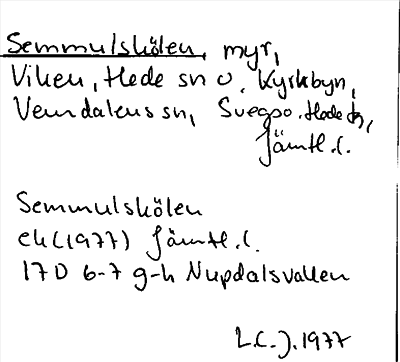 Semmulskölen, myr,
Viken, Hede sn o. Kyrkbyn,
Vemdalens sn, Svegso. Hede tg,
Jämtl.l.
Semmulskölen
ek (1977) Jämtl.l.
17D 6-7 g-h Nupdalsvallen
L.C.J. 1977